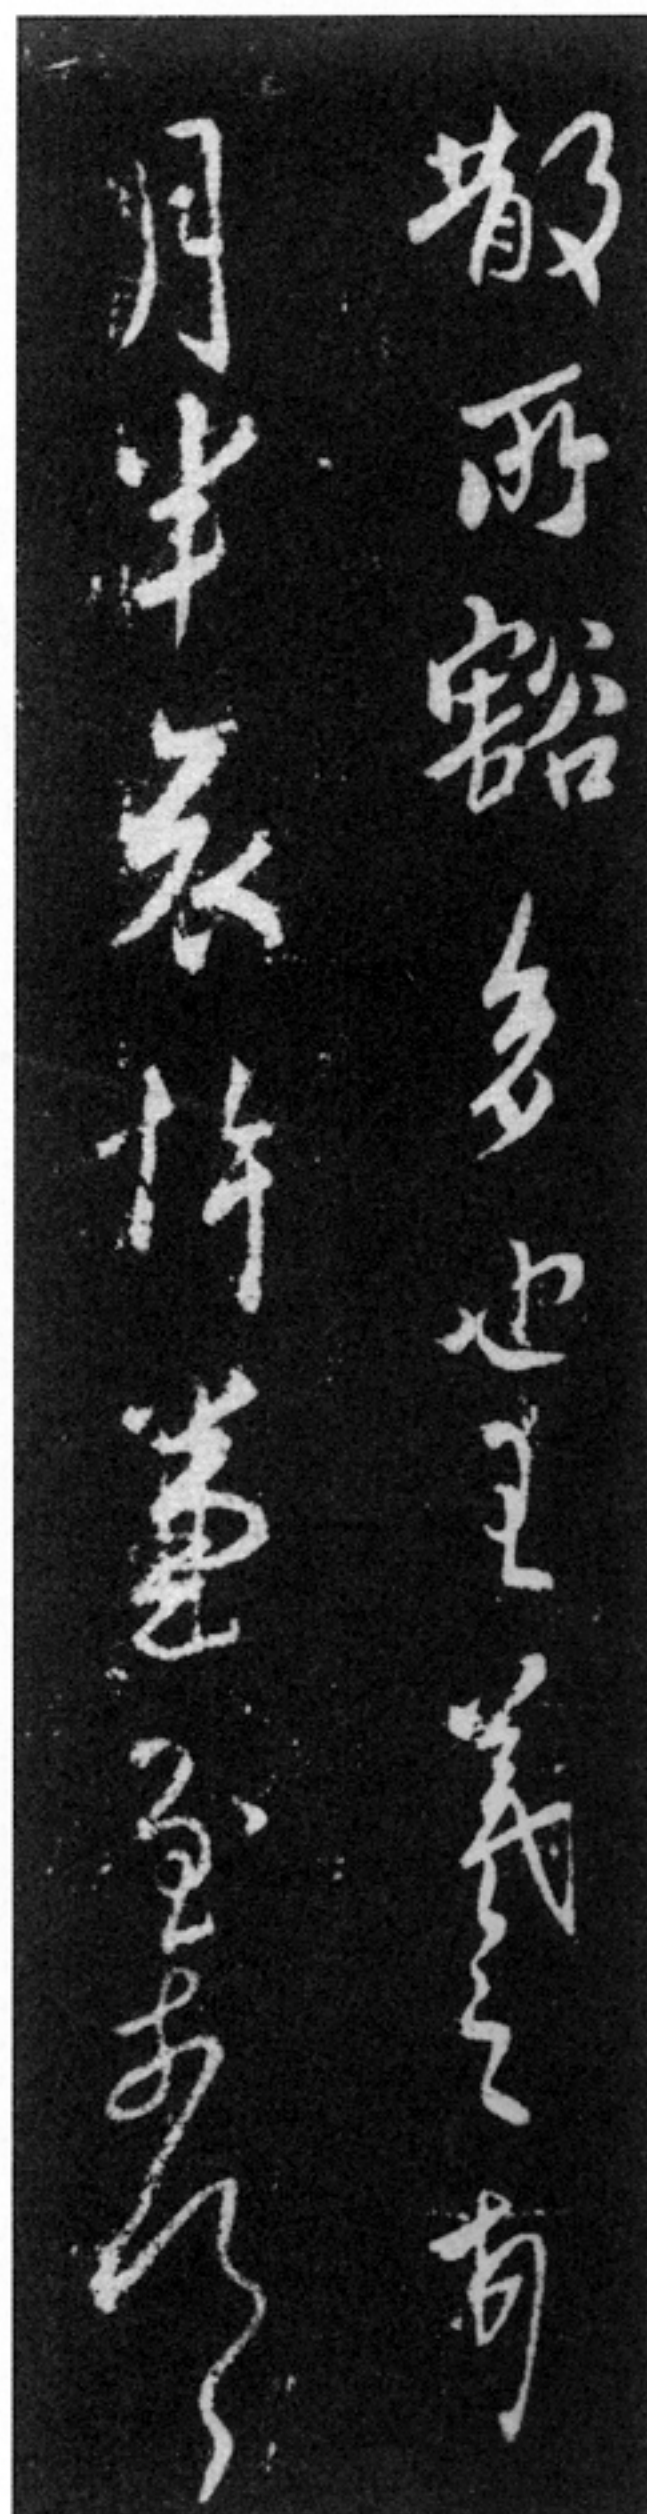 散所豁多也王羲之
月半哀兼至奈何